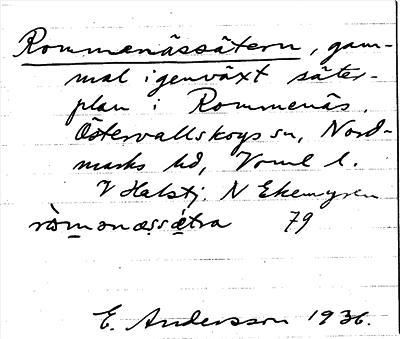 Rommenässätern, gam-
mal igenväxt säter-
plan i Rommenäs.
Östervallskogs sn, Nord-
marks hd, Vrml l.
V Halstj. N Ekemyren
ròmonæssǽtra 79
E. Andersson 1936.